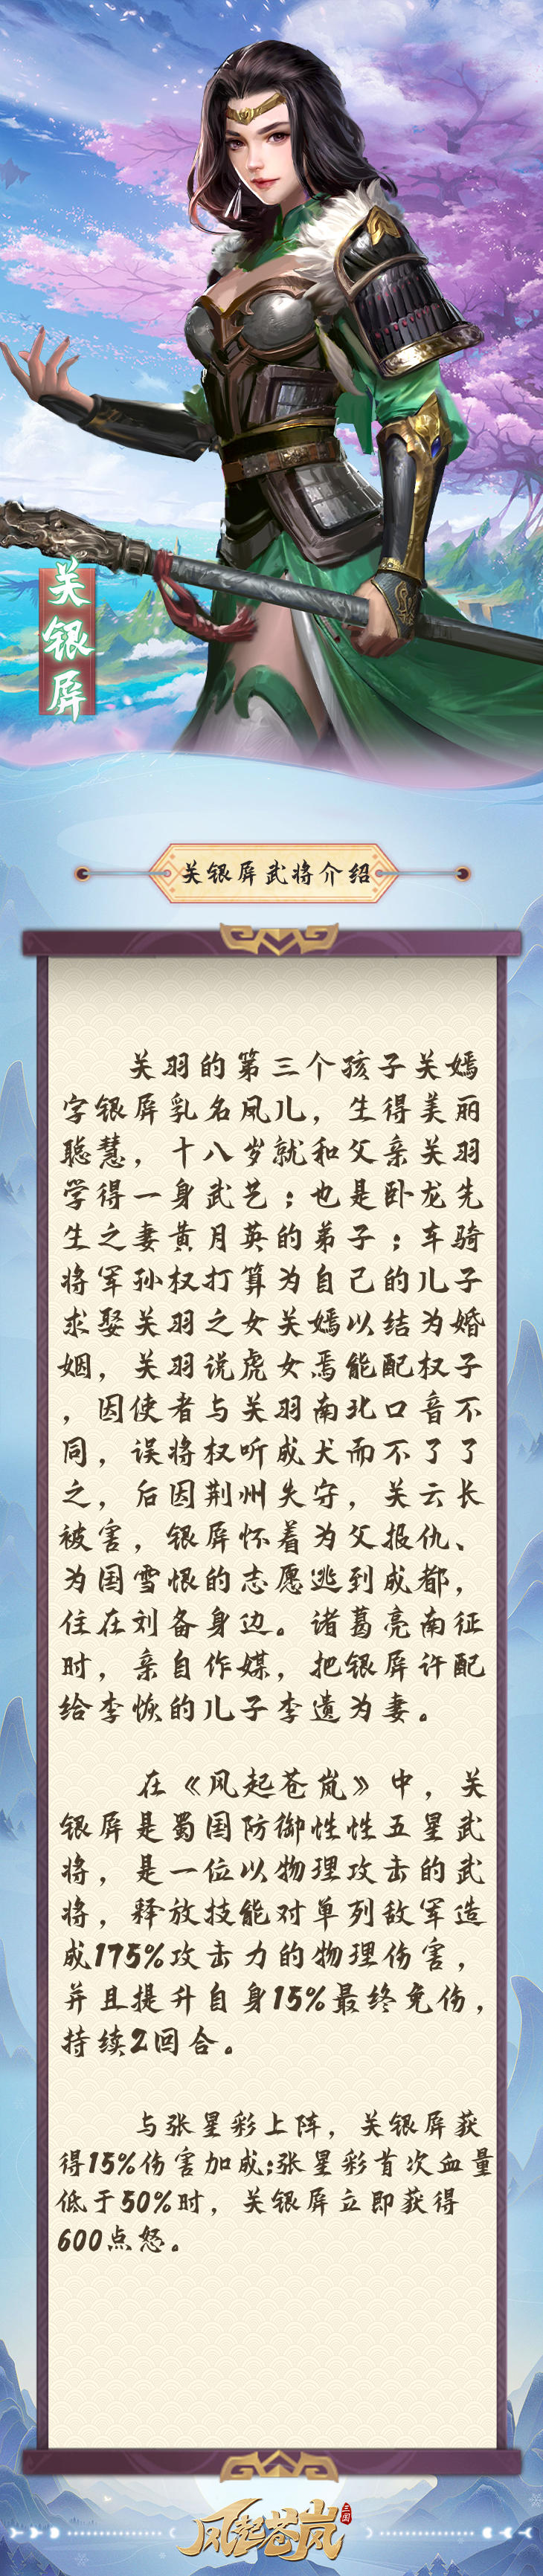 关银屏
关银屏武将介绍
关羽的第三个孩子关嫣
字银屏乳名凤儿，生得美丽
聪慧，十八岁就和父亲关羽
学得一身武艺；也是卧龙先
生之妻黄月英的弟子；车骑
将军孙权打算为自己的儿子
求娶关羽之女关嫣以结为婚
姻，关羽说虎女焉能配权子
，因使者与关羽南北口音不
同，误将权听成犬而不了了
之，后因荆州失守，关云长
被害，银屏怀着为父报仇、
为国雪恨的志愿逃到成都，
住在刘备身边。诸葛亮南征
时，亲自作媒，把银屏许配
给李恢的儿子李遗为妻。
在《风起苍岚》中，关
银屏是蜀国防御性性五星武
将，是一位以物理攻击的武
将，释放技能对单列敌军造
成175%攻击力的物理伤害，
并且提升自身15%最终免伤，
持续2回合。
与张星彩上阵，关银屏获
得15%伤害加成;张星彩首次血量
低于50%时，关银屏立即获得
600点怒。
风起苍岚
三国